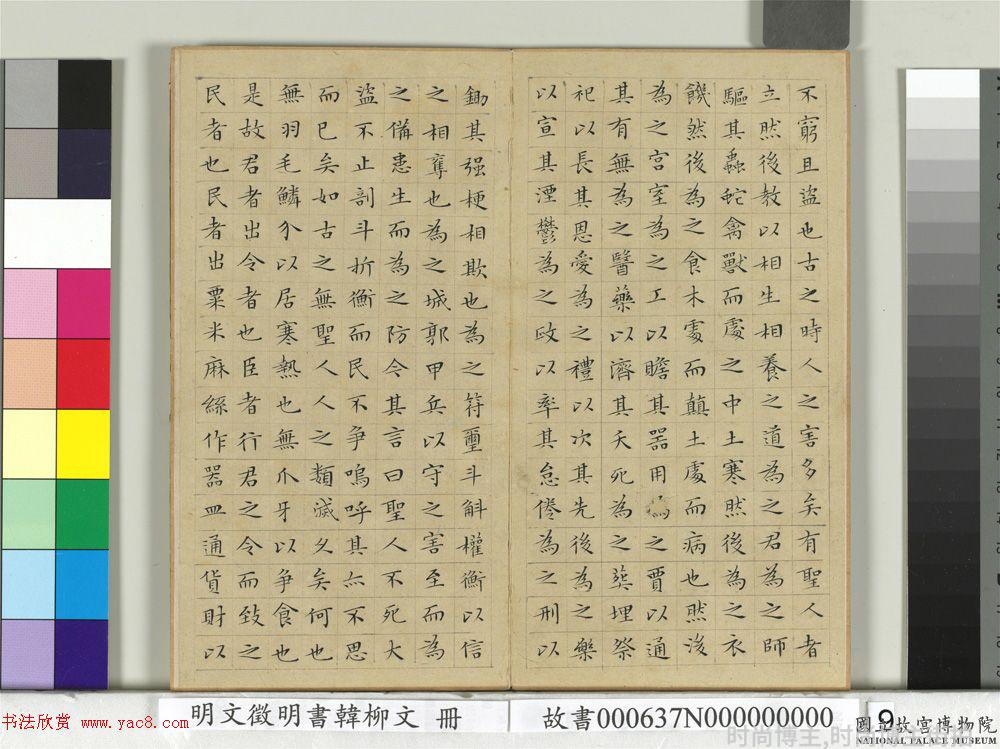 不窮且盜也古之時人之害多矣有聖人者
立然後教以相生相養之道為之君為之師
驅其蟲蛇禽獸而處之中土寒然後為之衣
饑然後為之食木處而顛土處而病也然後
為之宮室為之工以瞻其器用為之賈以通
其有無為之醫藥以濟其夭死為之葬埋祭
祀以長其恩愛為之禮以次其先後為之樂
以宣其湮鬱為之政以率其怠倦為之刑以
鋤其强梗相欺也為之符璽斗斛權衡以信
之相奪也為之城郭甲兵以守之害至而為
之備患生而為之防今其言曰聖人不死大
盜不止剖斗折衡而民不爭嗚呼其亦不思
而已矣如古之無聖人人之類滅久矣何也
無羽毛鱗介以居寒熱也無爪牙以爭食也
是故君者出令者也臣者行君之令而致之
民者也民者出粟米麻絲作器皿通貨財以
明文徵明書韓柳文 冊
故書000637N000000000
9
國立故宮博物院
NATIONAL PALACE MUSEUM
书法欣赏 www.yac8.com
时尚博主,时